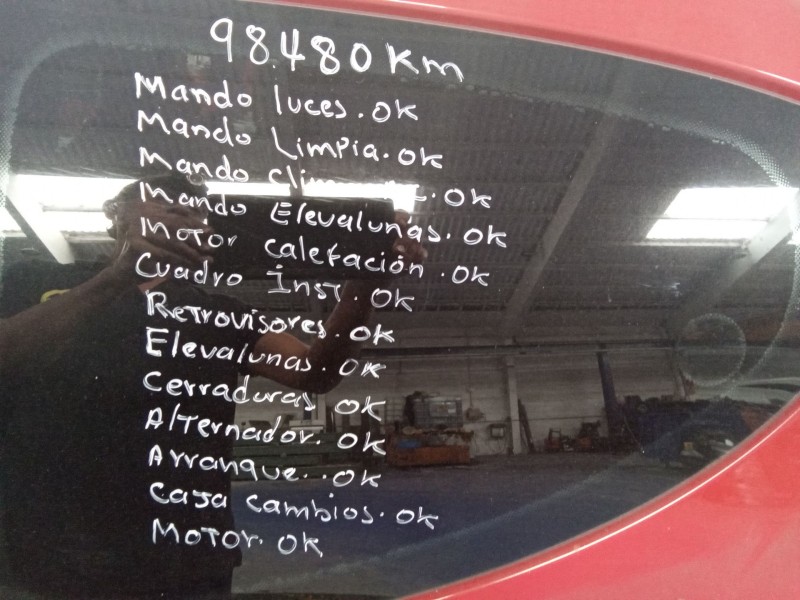 98.480 Km
Mando luces. OK
Mando Limpia. OK
Mando . OK
Mando Elevalunas. OK
Motor calefación. OK
Cuadro Inst. OK
Retrovisores. OK
Elevalunas. OK
Cerraduras OK
Alternador. OK
Arranque.. OK
Caja cambios. OK
Motor. OK